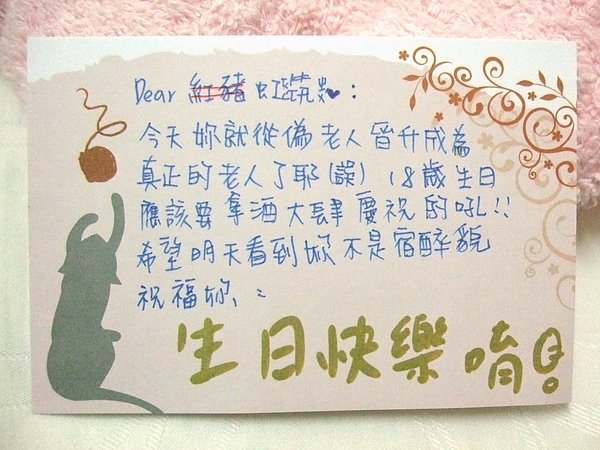 Dear 紅豬 虹筑 ♥：
今天妳就從偽老人晉升成為
真正的老人了耶(誤) 18歲生日
應該要拿酒大肆慶祝的吼!!
希望明天看到妳不是宿醉貌
祝福妳、:
生日快樂唷!